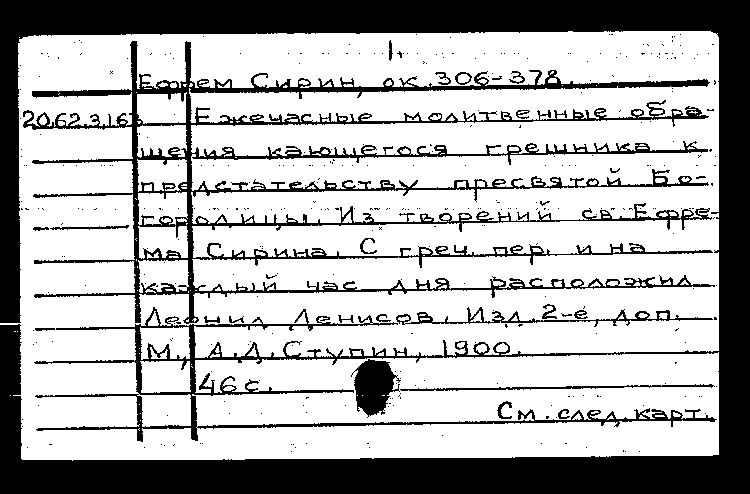 1.
Ефрем Сирин, ок. 306-378.
20.62.3.163 Ежечасные молитвенные обра-
щения кающегося грешника к
предстательству пресвятой Бо-
городицы. Из творений св. Ефре-
ма Сирина. С греч. пер. и на
каждый час дня расположил
Леонид Денисов. Изд. 2-е, доп.
М., А.Д. Ступин, 1900.
46 с.
См. след. карт.